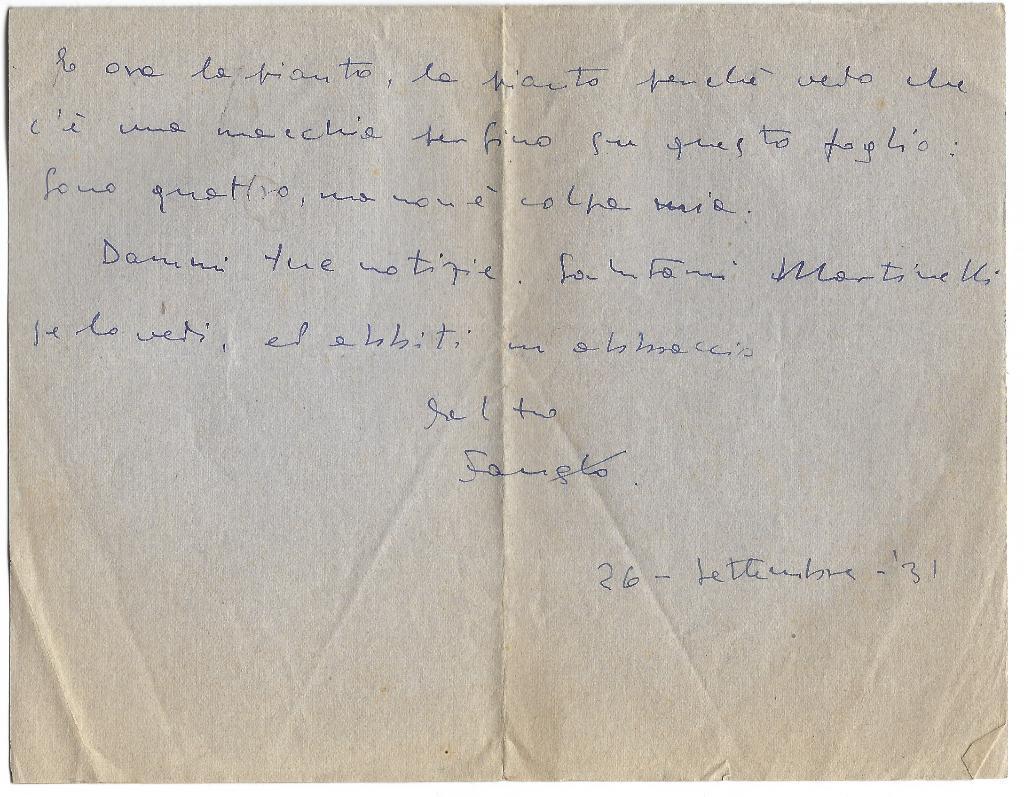 E ora la pianto, la pianto perché vedo che
c'è una macchia perfino su questo foglio:
sono quattro, ma non è colpa mia.
Dammi tue notizie. Salutami Martinelli
se lo vedi, ed abbiti un abbraccio
dal tuo
Fausto.
26 - Settembre - '31